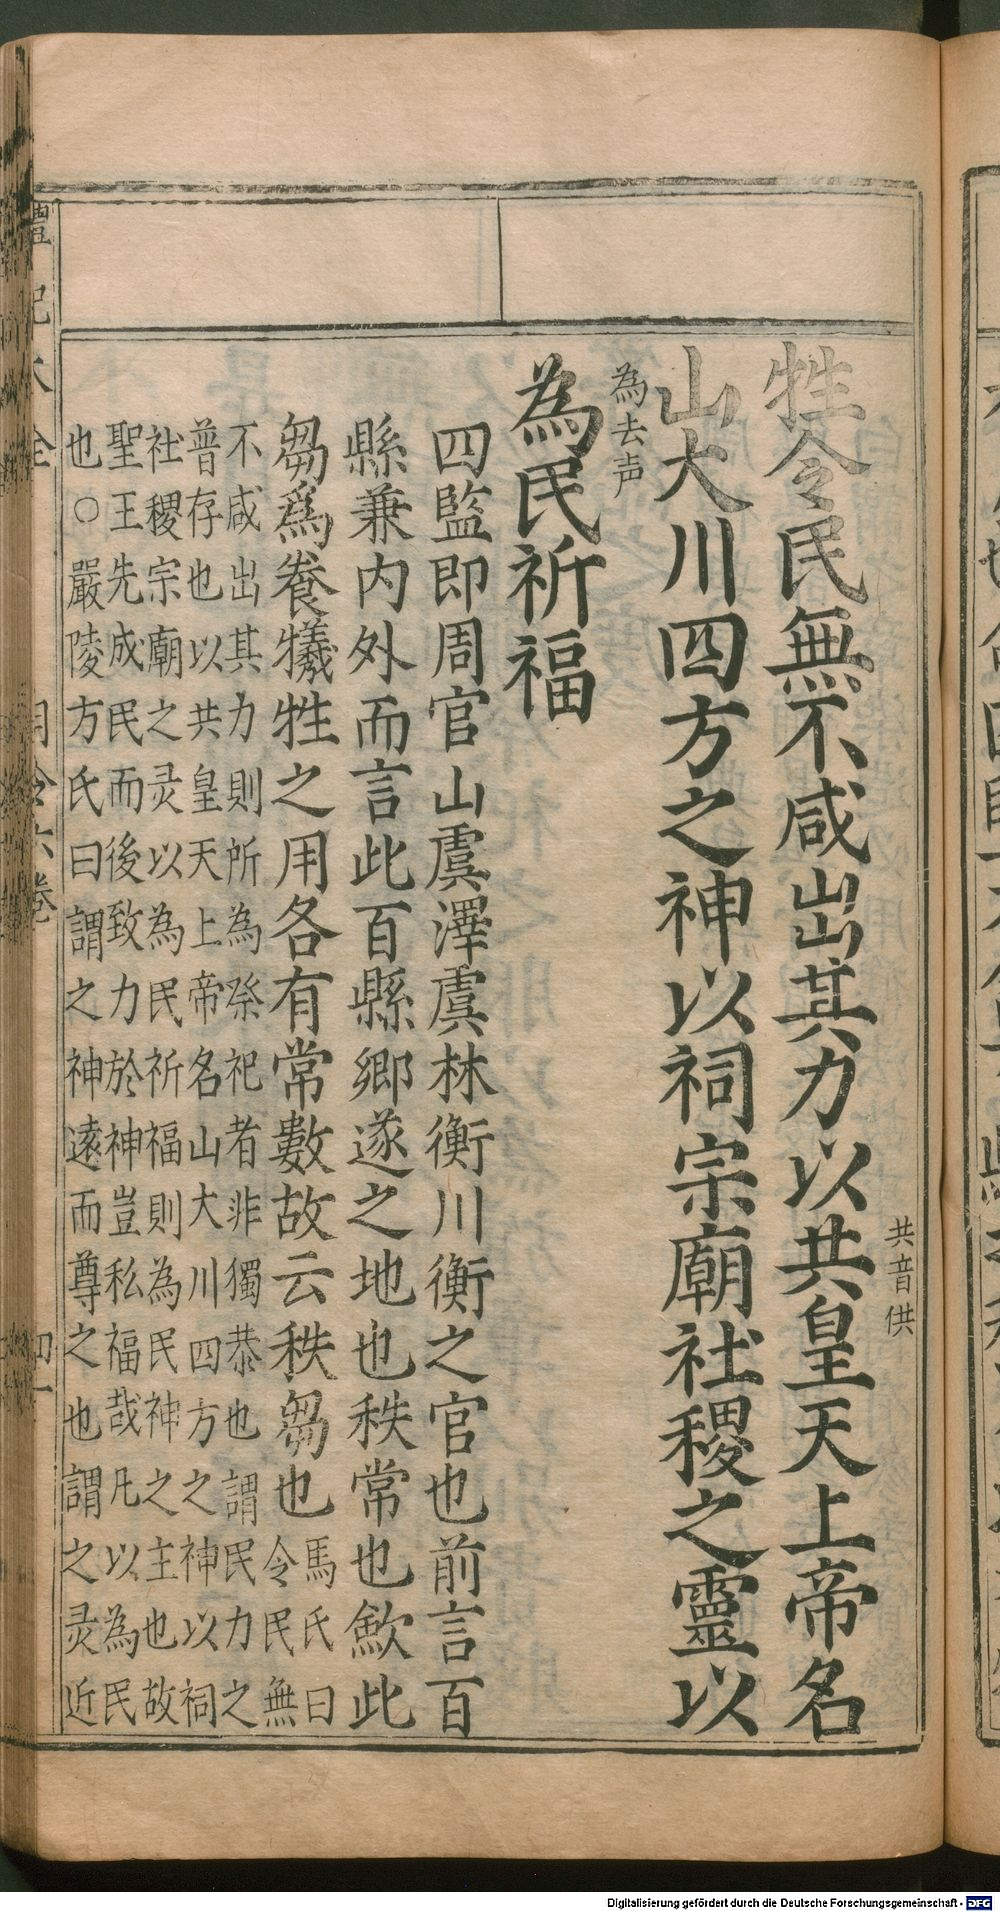 牲令民無不咸出其力以共皇天上帝名
共音供
山大川四方之神以祠宗廟社稷之靈以
為去声
為民祈福
四監即周官山虞澤虞林衡川衡之官也前言百
縣兼内外而言此百縣鄉遂之地也秩常也歛此
芻爲養犧牲之用各有常數故云秩芻也
馬氏曰
令民無
不咸出其力則所為祭祀者非獨恭也謂民力之
普存也以共皇天上帝名山大川四方之神以祠
社稷宗廟之灵以為民祈福則為民神之主也故
聖王先成民而後致力於神豈私福哉凡以為民
也○嚴陵方氏曰謂之神遠而尊之也謂之灵近
月令六卷
四一
Digitalisierung gefördert durch die Deutsche Forschungsgemeinschaft - DFG